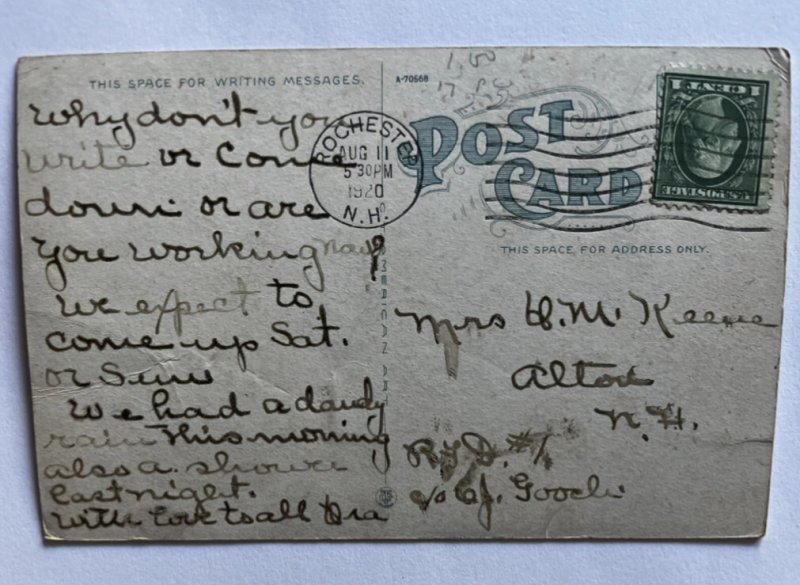 THIS SPACE FOR WRITING MESSAGES.
Why don't you
write or come
down or are
you working now?
We expect to
come up Sat.
or Sun
We had a dandy
rain this morning
also a shower
last night.
With love to all Ira
A-70568
1,00
ROCHESTER
AUG 11
5 30 PM
1920
N.H.
POST
CARD
THIS SPACE FOR ADDRESS ONLY.
Mrs H. M. Keene
Alton
N.H.
R.F.D. #1
c/o C.J. Gooch